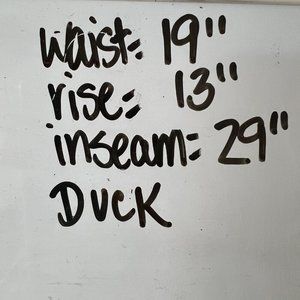 waist: 19"
rise: 13"
inseam: 29"
DUCK